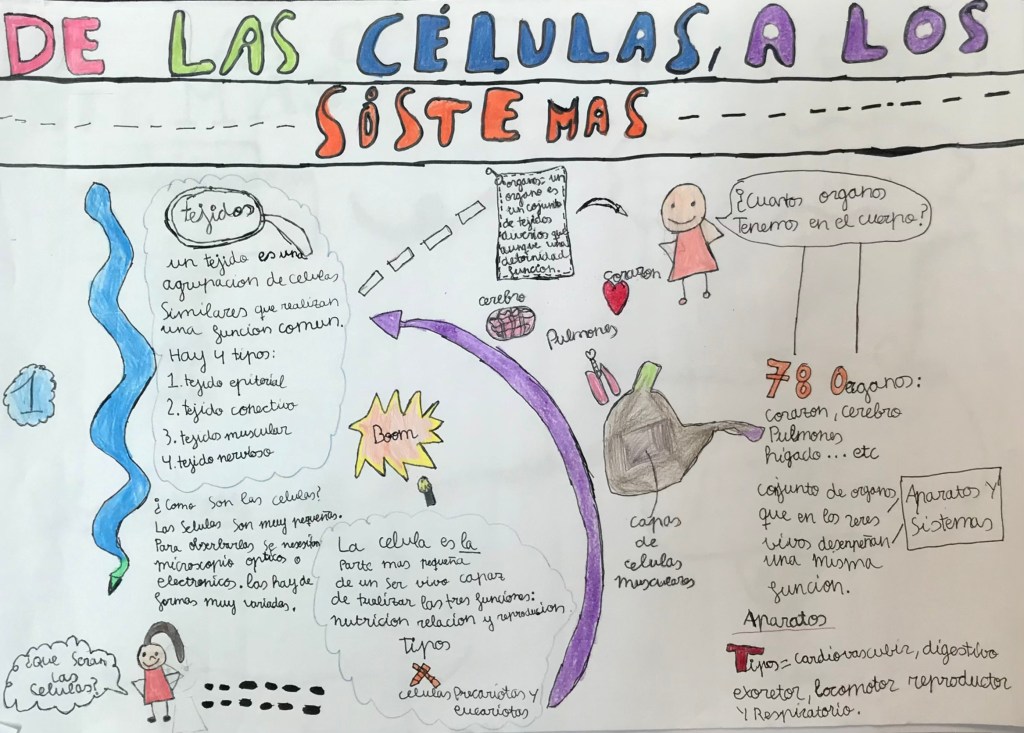 DE LAS CÉLULAS, A LOS
SISTEMAS
1
tejidos
un tejido es una
agrupacion de celulas
Similares que realizan
una funcion comun.
Hay 4 tipos:
1. tejido epitorial
2. tejido conectivo
3. tejido muscular
4. tejido nervioso
¿Como son las celulas?
Las Selulas son muy pequeñas.
Para obserbarlas se nesesitan
microscopio optico o
electronicos. las hay de
formas muy variadas.
¿Que seran
las
celulas?
Boom
La celula es la
Parte mas pequeña
de un ser vivo capaz
de tuelizar las tres funciones:
nutricion relacion y reproducion
Tipos
celulas Procariotas y
eucariotas
organos= un
organo es
un cojunto
de tejidos
diversos que
aunque una
detirnidad
funcion.
cerebro
corazon
Pulmones
capas
de
celulas
musculares
¿Cuantos organos
Tenemos en el cuerpo?
78 Organos:
corazon, cerebro
Pulmones
higado ... etc
cojunto de organos
que en los seres
vivos desenpeñan
una misma
funcion.
Aparatos Y
Sistemas
Aparatos
Tipos= cardiovasculir, digestivo
exoretor, locomotor reproductor
Y Respiratorio.